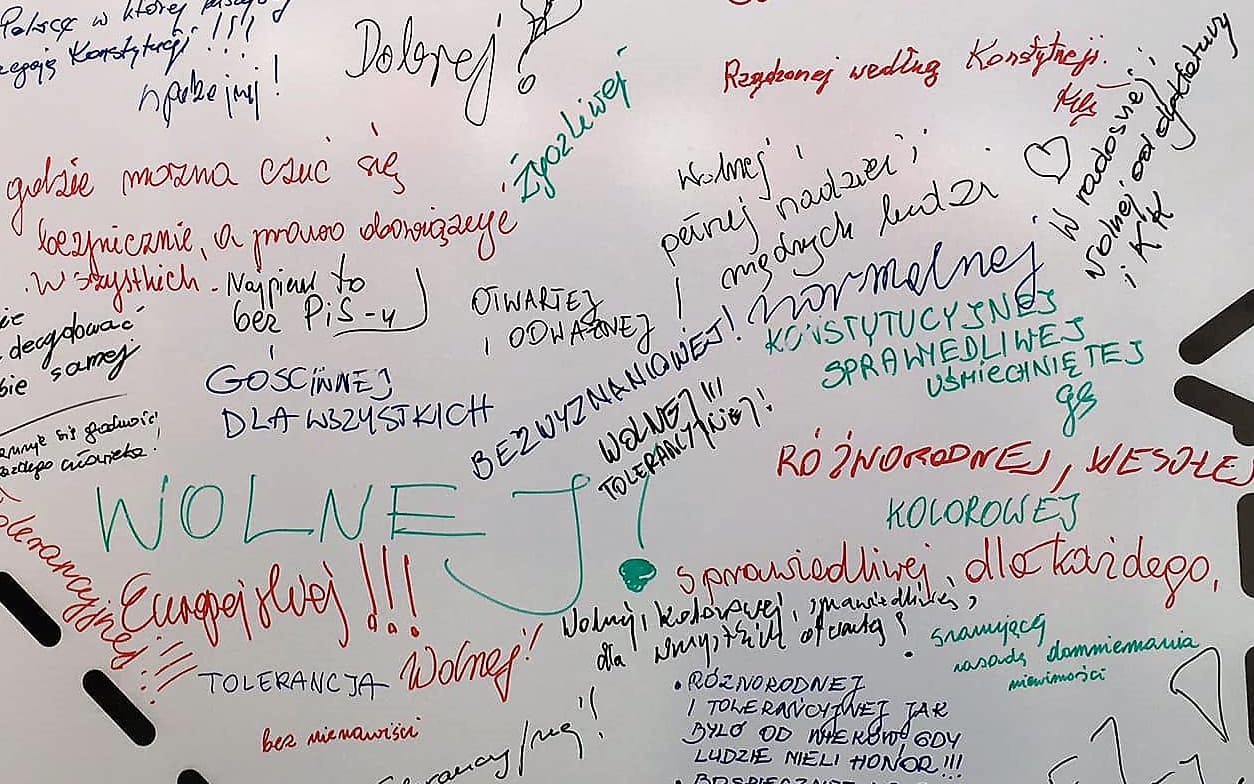 Polsce w której
Konstytucji!!!
Dobrej!
Rządzonej według Konstytucji.
W radosnej,
wolnej od dyktatury
i KK
Życzliwej
gdzie można czuć się
bezpiecznie, a prawo obowiązuje
wszystkich.
Najpierw to
bez PiS-u
Wolnej,
pełnej nadziei i
mądrych ludzi
OTWARTEJ
I ODWAŻNEJ
normalnej
BEZWYZNANIOWEJ!
KONSTYTUCYJNEJ
SPRAWIEDLIWEJ
UŚMIECHNIĘTEJ
decydować
samej
GOŚCINNEJ
DLA WSZYSTKICH
WOLNEJ!!!
TOLERANCYJNEJ!
się godność
człowieka!
RÓŻNORODNEJ, WESOŁEJ
KOLOROWEJ
WOLNEJ!
Tolerancyjnej!!!
Europejskiej!!!
sprawiedliwej, dla każdego,
Wolnej, kolorowej, sprawiedliwej,
dla wszystkich otwartej!
szanującej
zasadę domniemania
niewinności
TOLERANCJA
Wolnej!
bez nienawiści
• RÓŻNORODNEJ
I TOLERANCYJNEJ JAK
BYŁO OD WIEKÓW GDY
LUDZIE MIELI HONOR!!!